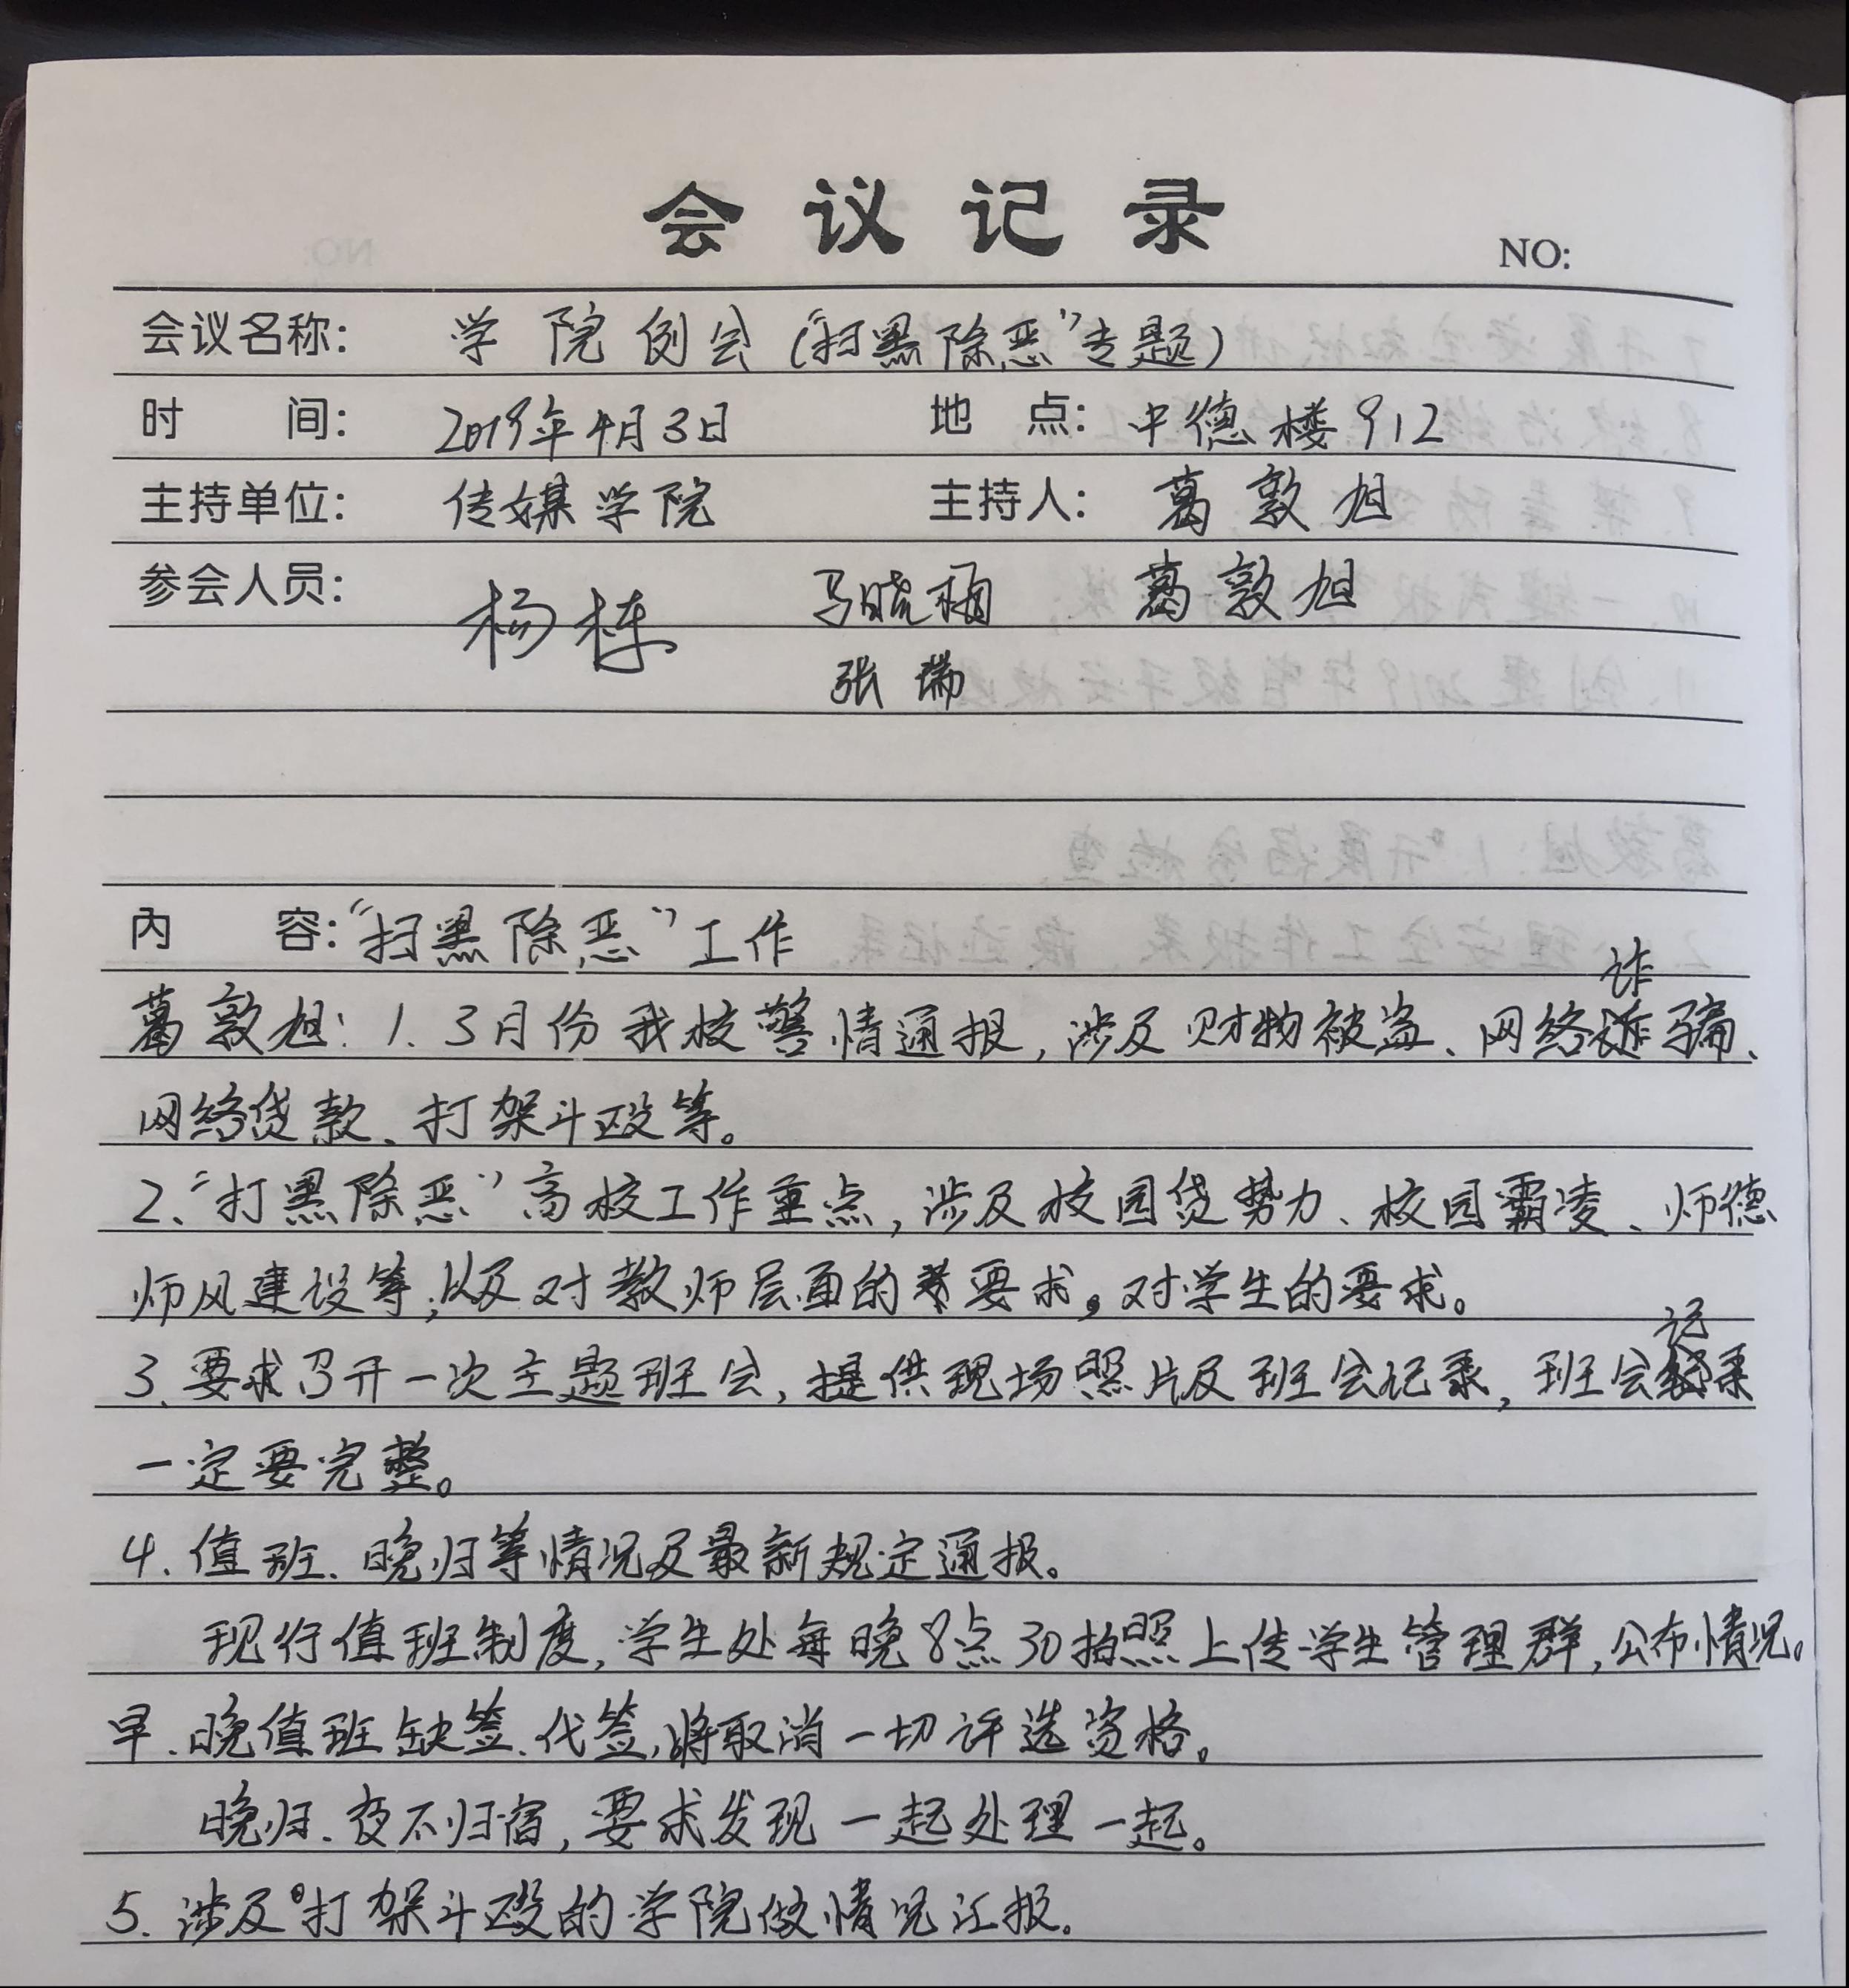 会议记录
NO:
会议名称: 学院例会(“扫黑除恶”专题)
时 间: 2019年4月3日 地 点: 中德楼912
主持单位: 传媒学院 主持人: 葛敦旭
参会人员: 杨栋 马晓梅 葛敦旭
张瑞
内 容: “扫黑除恶”工作
葛敦旭: 1. 3月份我校警情通报, 涉及财物被盗、网络诈骗、
网络贷款、打架斗殴等。
2、“打黑除恶”高校工作重点, 涉及校园贷势力、校园霸凌、师德
师风建设等; 以及对教师层面的要求。对学生的要求。
3、要求召开一次主题班会, 提供现场照片及班会记录, 班会记录
一定要完整。
4. 值班、晚归等情况及最新规定通报。
现行值班制度, 学生处每晚8点30拍照上传学生管理群, 公布情况。
早、晚值班缺签、代签, 将取消一切评选资格。
晚归、夜不归宿, 要求发现一起处理一起。
5. 涉及打架斗殴的学院做情况汇报。